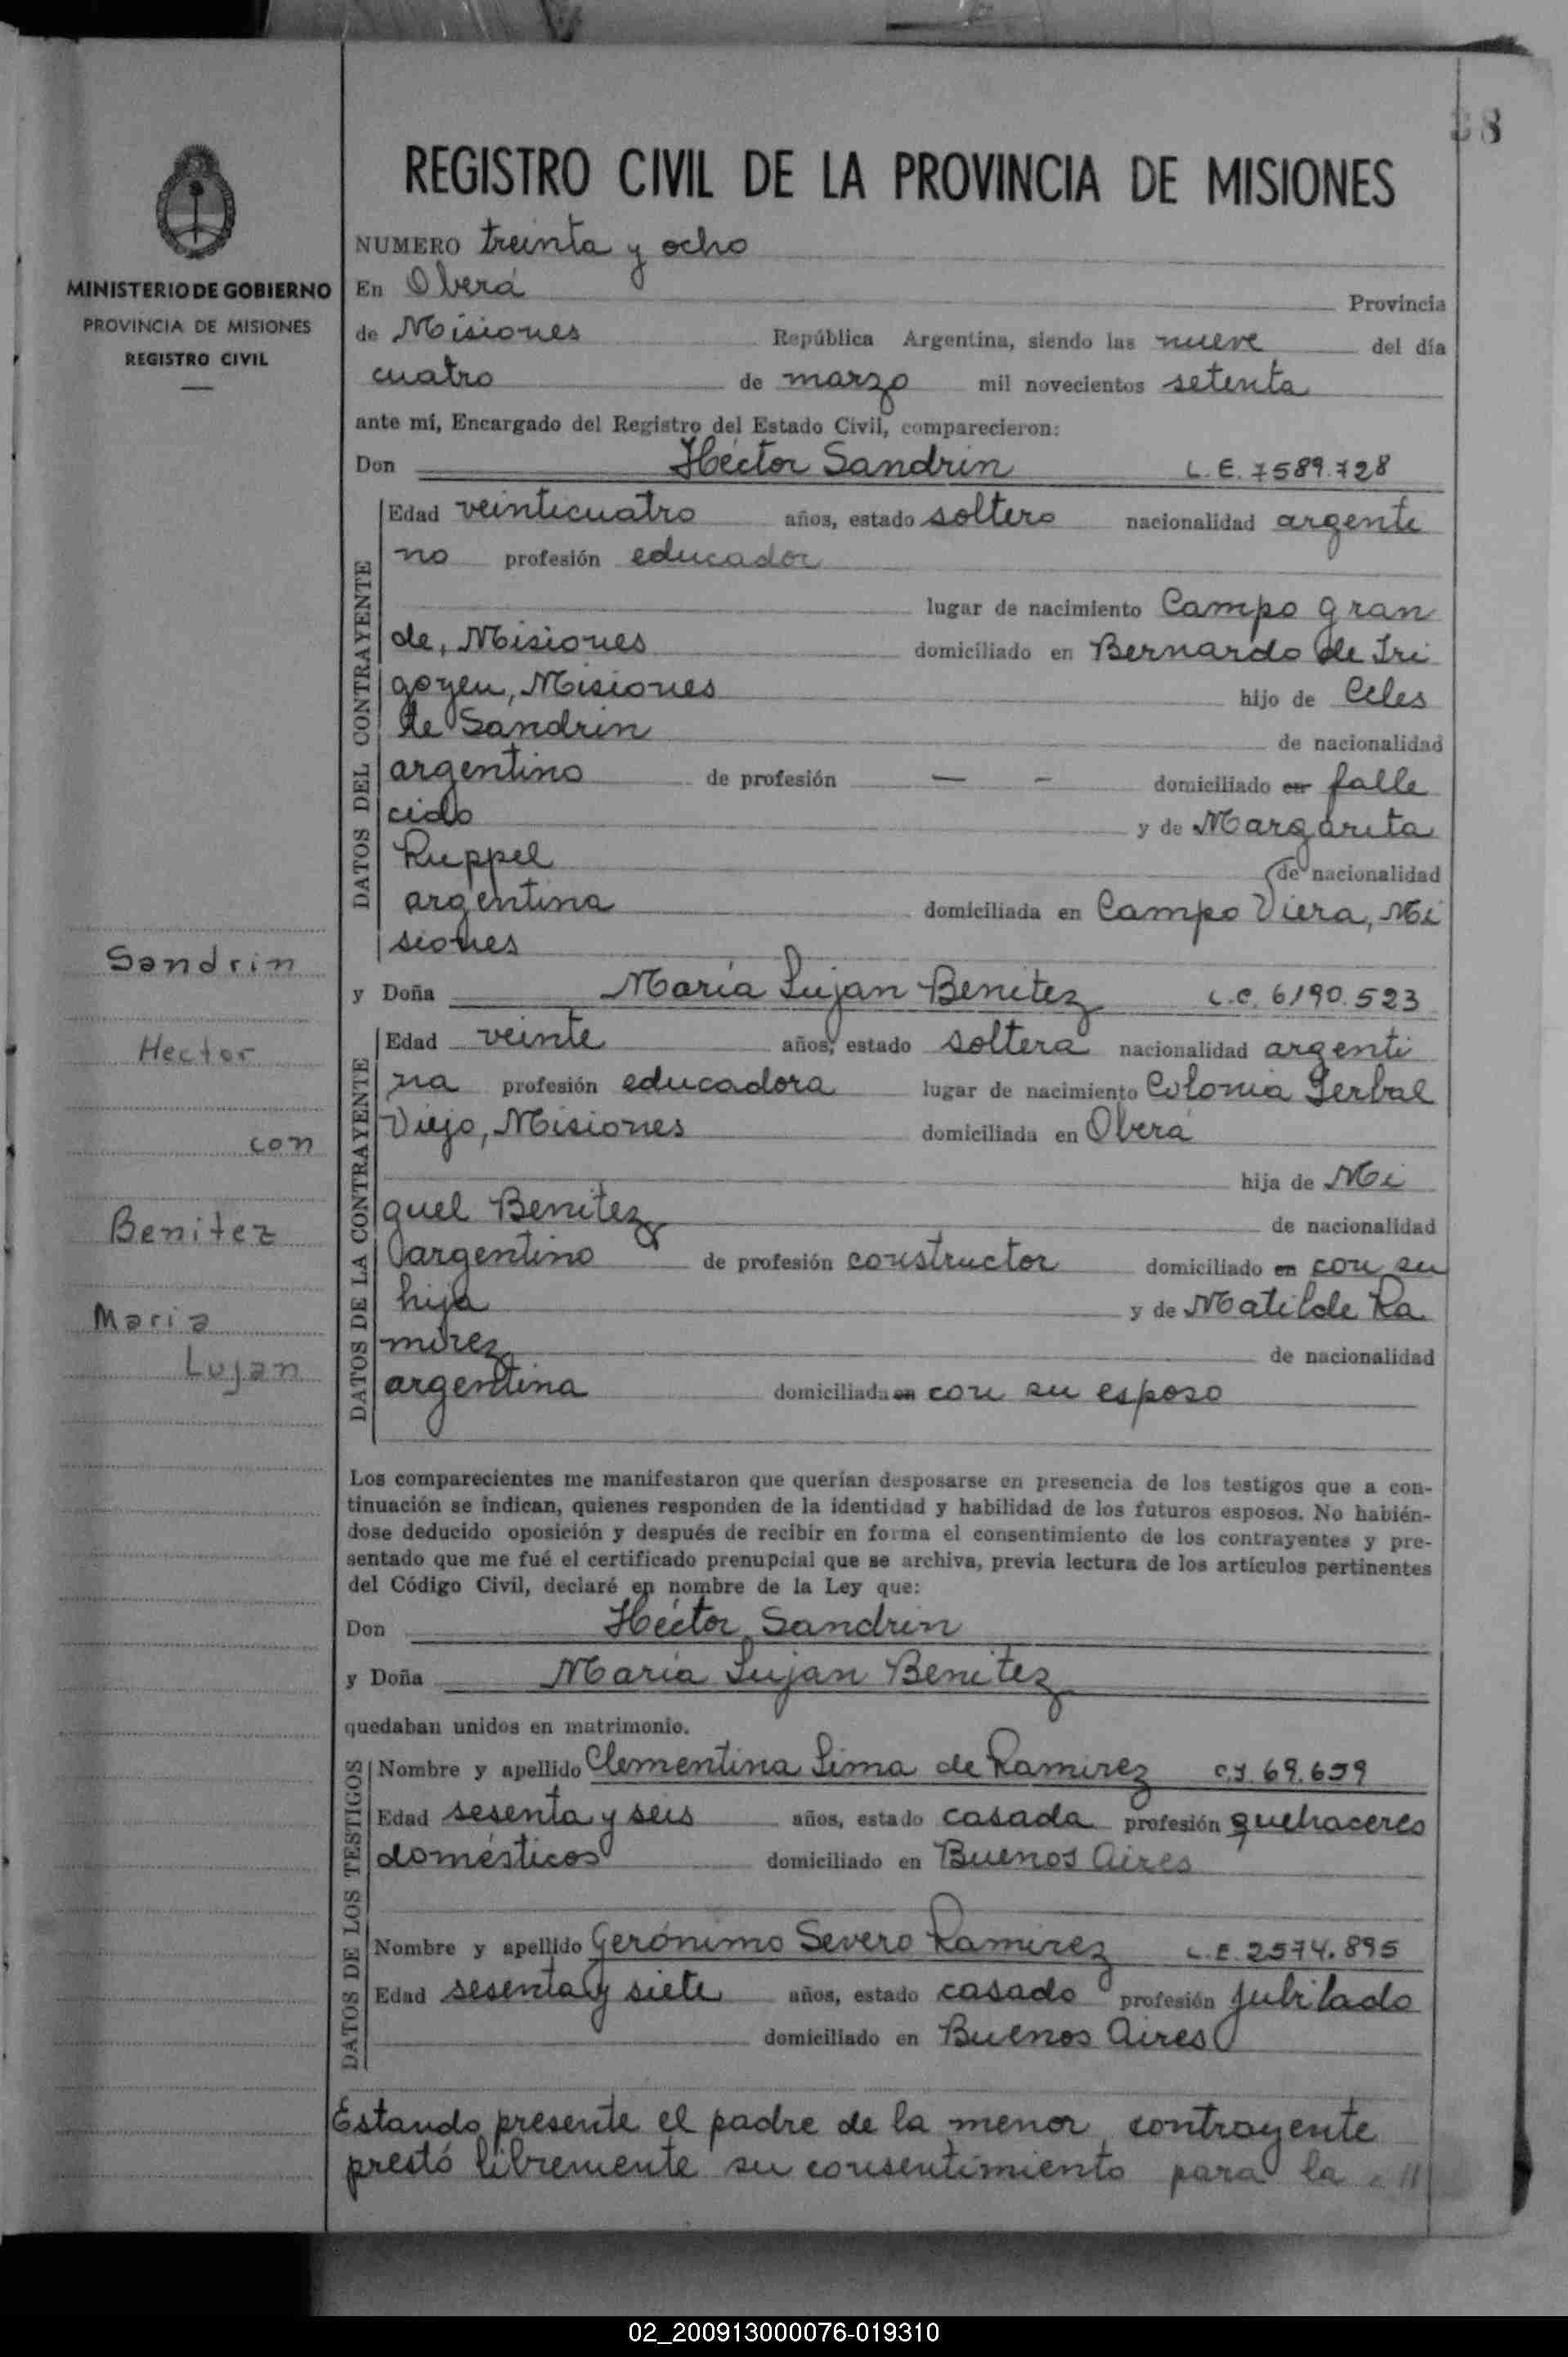 38
REGISTRO CIVIL DE LA PROVINCIA DE MISIONES
MINISTERIO DE GOBIERNO
PROVINCIA DE MISIONES
REGISTRO CIVIL
NUMERO treinta y ocho
En Oberá Provincia
de Misiones República Argentina, siendo las nueve del día
cuatro de marzo mil novecientos setenta
ante mí, Encargado del Registro del Estado Civil, comparecieron:
Don Héctor Sandrin L.E. 7589.728
DATOS DEL CONTRAYENTE
Edad veinticuatro años, estado soltero nacionalidad argenti
no profesión educador
lugar de nacimiento Campo Gran
de, Misiones domiciliado en Bernardo de Iri
goyen, Misiones hijo de Celes
te Sandrin de nacionalidad
argentino de profesión — - domiciliado en falle
cido y de Margarita
Ruppel de nacionalidad
argentina domiciliada en Campo Viera, Mi
siones
Sandrin
Hector
con
Benitez
Maria
Lujan
y Doña María Lujan Benitez L.C. 6190.523
DATOS DE LA CONTRAYENTE
Edad veinte años, estado soltera nacionalidad argenti
na profesión educadora lugar de nacimiento Colonia Yerbal
Viejo, Misiones domiciliada en Oberá
hija de Mi
guel Benitez de nacionalidad
argentino de profesión constructor domiciliado en con su
hija y de Matilde Ra
mirez de nacionalidad
argentina domiciliada en con su esposo
Los comparecientes me manifestaron que querían desposarse en presencia de los testigos que a con-
tinuación se indican, quienes responden de la identidad y habilidad de los futuros esposos. No habién-
dose deducido oposición y después de recibir en forma el consentimiento de los contrayentes y pre-
sentado que me fué el certificado prenupcial que se archiva, previa lectura de los artículos pertinentes
del Código Civil, declaré en nombre de la Ley que:
Don Héctor Sandrin
y Doña María Lujan Benitez
quedaban unidos en matrimonio.
DATOS DE LOS TESTIGOS
Nombre y apellido Clementina Lima de Ramirez C.I. 69.659
Edad sesenta y seis años, estado casada profesión quehaceres
domésticos domiciliado en Buenos Aires
Nombre y apellido Gerónimo Severo Ramirez L.E. 2574.895
Edad sesenta y siete años, estado casado profesión jubilado
domiciliado en Buenos Aires
Estando presente el padre de la menor contrayente
prestó libremente su consentimiento para la //
02_200913000076-019310